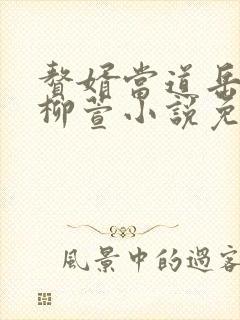 贅婿當道岳
柳萱小說免
風景中的過客